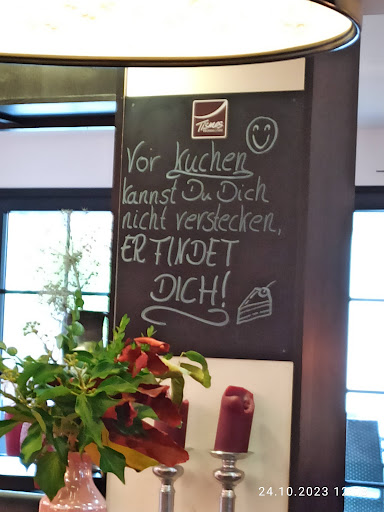 Vor Kuchen
kannst Du Dich
nicht verstecken,
ER FINDET
DICH!
24.10.2023